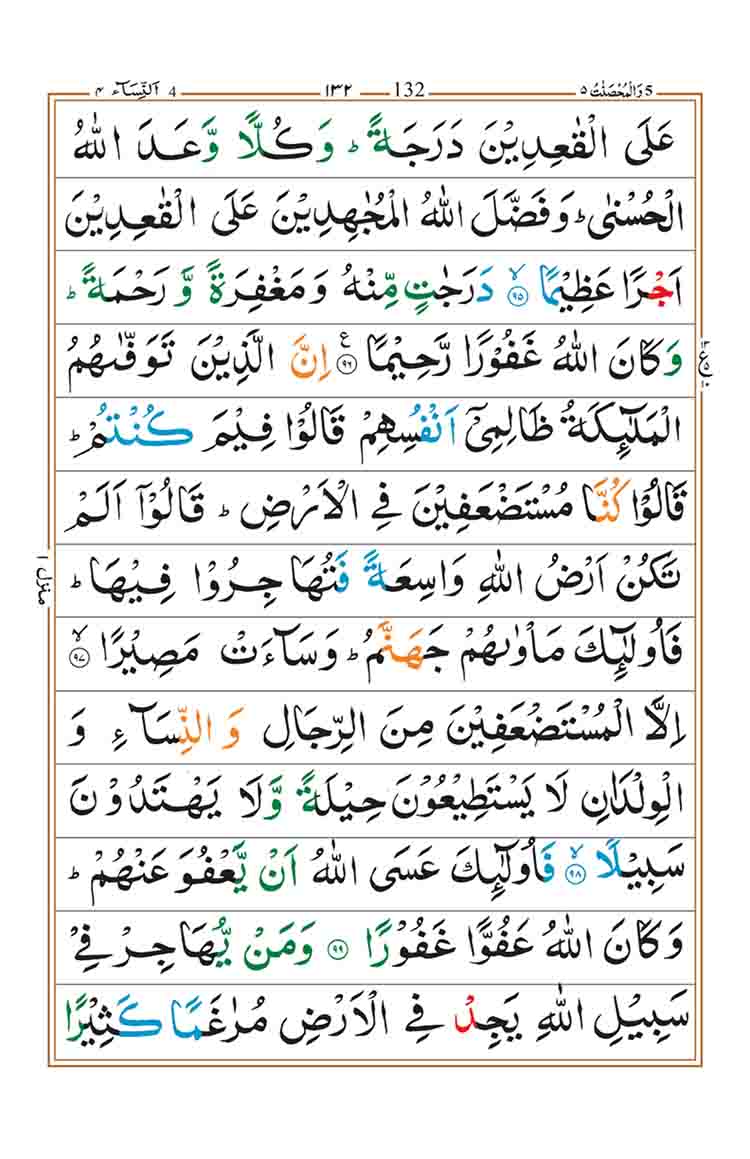 5 وَالْمُحْصَنٰتُ ٥ 132 ١٣٢ 4 اَلنِّسَآء ٤
عَلَى الْقٰعِدِيْنَ دَرَجَةً ؕ وَكُلًّا وَّعَدَ اللّٰهُ
الْحُسْنٰى ؕ وَفَضَّلَ اللّٰهُ الْمُجٰهِدِيْنَ عَلَى الْقٰعِدِيْنَ
اَجْرًا عَظِيْمًا ۙ﴿٩٥﴾ دَرَجٰتٍ مِّنْهُ وَمَغْفِرَةً وَّرَحْمَةً ؕ
وَكَانَ اللّٰهُ غَفُوْرًا رَّحِيْمًا ﴿٩٦﴾ ع اِنَّ الَّذِيْنَ تَوَفّٰىهُمُ
الْمَلٰٓئِكَةُ ظَالِمِىْٓ اَنْفُسِهِمْ قَالُوْا فِيْمَ كُنْتُمْ ؕ
قَالُوْا كُنَّا مُسْتَضْعَفِيْنَ فِى الْاَرْضِ ؕ قَالُوْٓا اَلَمْ
تَكُنْ اَرْضُ اللّٰهِ وَاسِعَةً فَتُهَاجِرُوْا فِيْهَا ؕ
فَاُولٰٓئِكَ مَاْوٰىهُمْ جَهَنَّمُ ؕ وَسَآءَتْ مَصِيْرًا ۙ﴿٩٧﴾
اِلَّا الْمُسْتَضْعَفِيْنَ مِنَ الرِّجَالِ وَالنِّسَآءِ وَ
الْوِلْدَانِ لَا يَسْتَطِيْعُوْنَ حِيْلَةً وَّلَا يَهْتَدُوْنَ
سَبِيْلًا ۙ﴿٩٨﴾ فَاُولٰٓئِكَ عَسَى اللّٰهُ اَنْ يَّعْفُوَ عَنْهُمْ ؕ
وَكَانَ اللّٰهُ عَفُوًّا غَفُوْرًا ﴿٩٩﴾ وَمَنْ يُّهَاجِرْ فِىْ
سَبِيْلِ اللّٰهِ يَجِدْ فِى الْاَرْضِ مُرٰغَمًا كَثِيْرًا
منزل ١